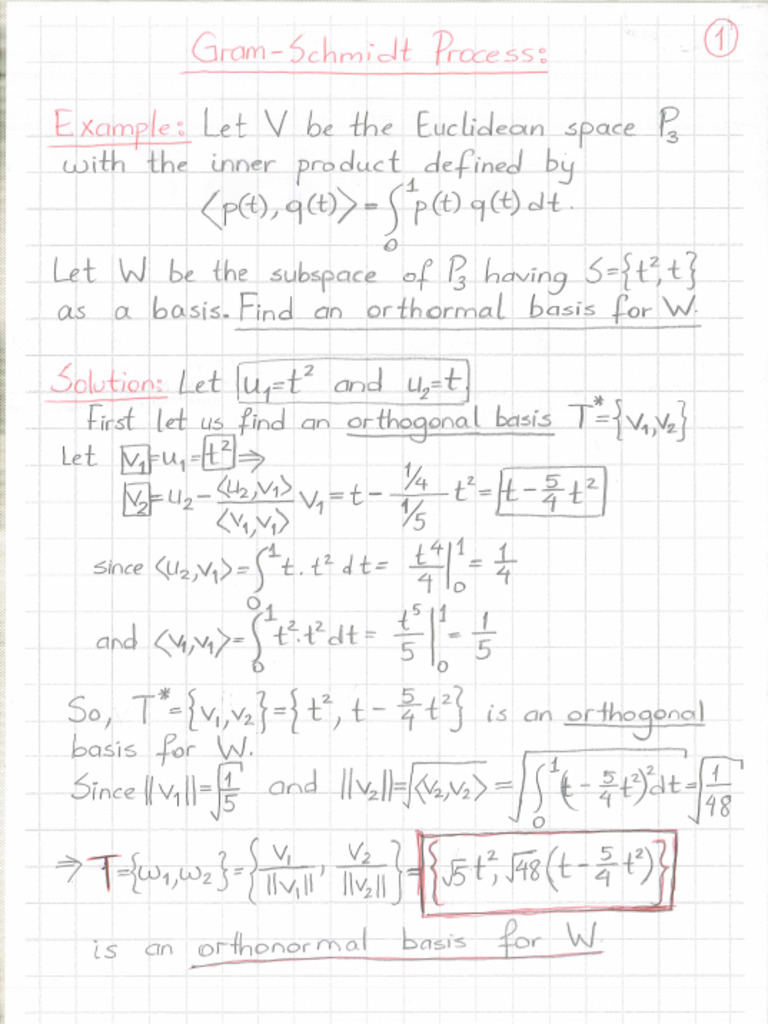 Gram-Schmidt Process:
1
Example: Let V be the Euclidean space P₃
with the inner product defined by
⟨p(t), q(t)⟩ = ∫₀¹ p(t) q(t) dt.
Let W be the subspace of P₃ having S={t², t}
as a basis. Find an orthormal basis for W.
Solution: Let u₁=t² and u₂=t.
First let us find an orthogonal basis T*={v₁,v₂}
Let v₁=u₁=t² ⇒
v₂=u₂-(⟨u₂,v₁⟩/⟨v₁,v₁⟩) v₁ = t - ((1/4)/(1/5)) t² = t - 5/4 t²
since ⟨u₂,v₁⟩ = ∫₀¹ t. t² dt = t⁴/4 |₀¹ = 1/4
and ⟨v₁,v₁⟩ = ∫₀¹ t². t² dt = t⁵/5 |₀¹ = 1/5
So, T*={v₁,v₂}={t², t - 5/4 t²} is an orthogonal
basis for W.
Since ||v₁||=√(1/5) and ||v₂||=√⟨v₂,v₂⟩ = √(∫₀¹ (t - 5/4 t²)² dt) = √(1/48)
⇒ T={w₁,w₂}={v₁/||v₁||, v₂/||v₂||}={√5 t², √48 (t - 5/4 t²)}
is an orthonormal basis for W.